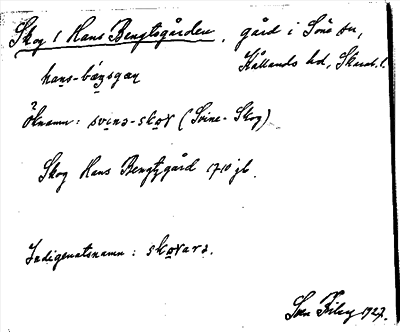 Skog 1 Hans Bengtsgården, gård i Söne sn,
Kållands hd, Skarab. l.
hans-bæŋsgaṇ
Öknamn: svinə-skoɤ (Svine-Skog)
Skog Hans Bengtzgård 1710 jb.
Indigenatsnamn: skoɤarə.
1927.